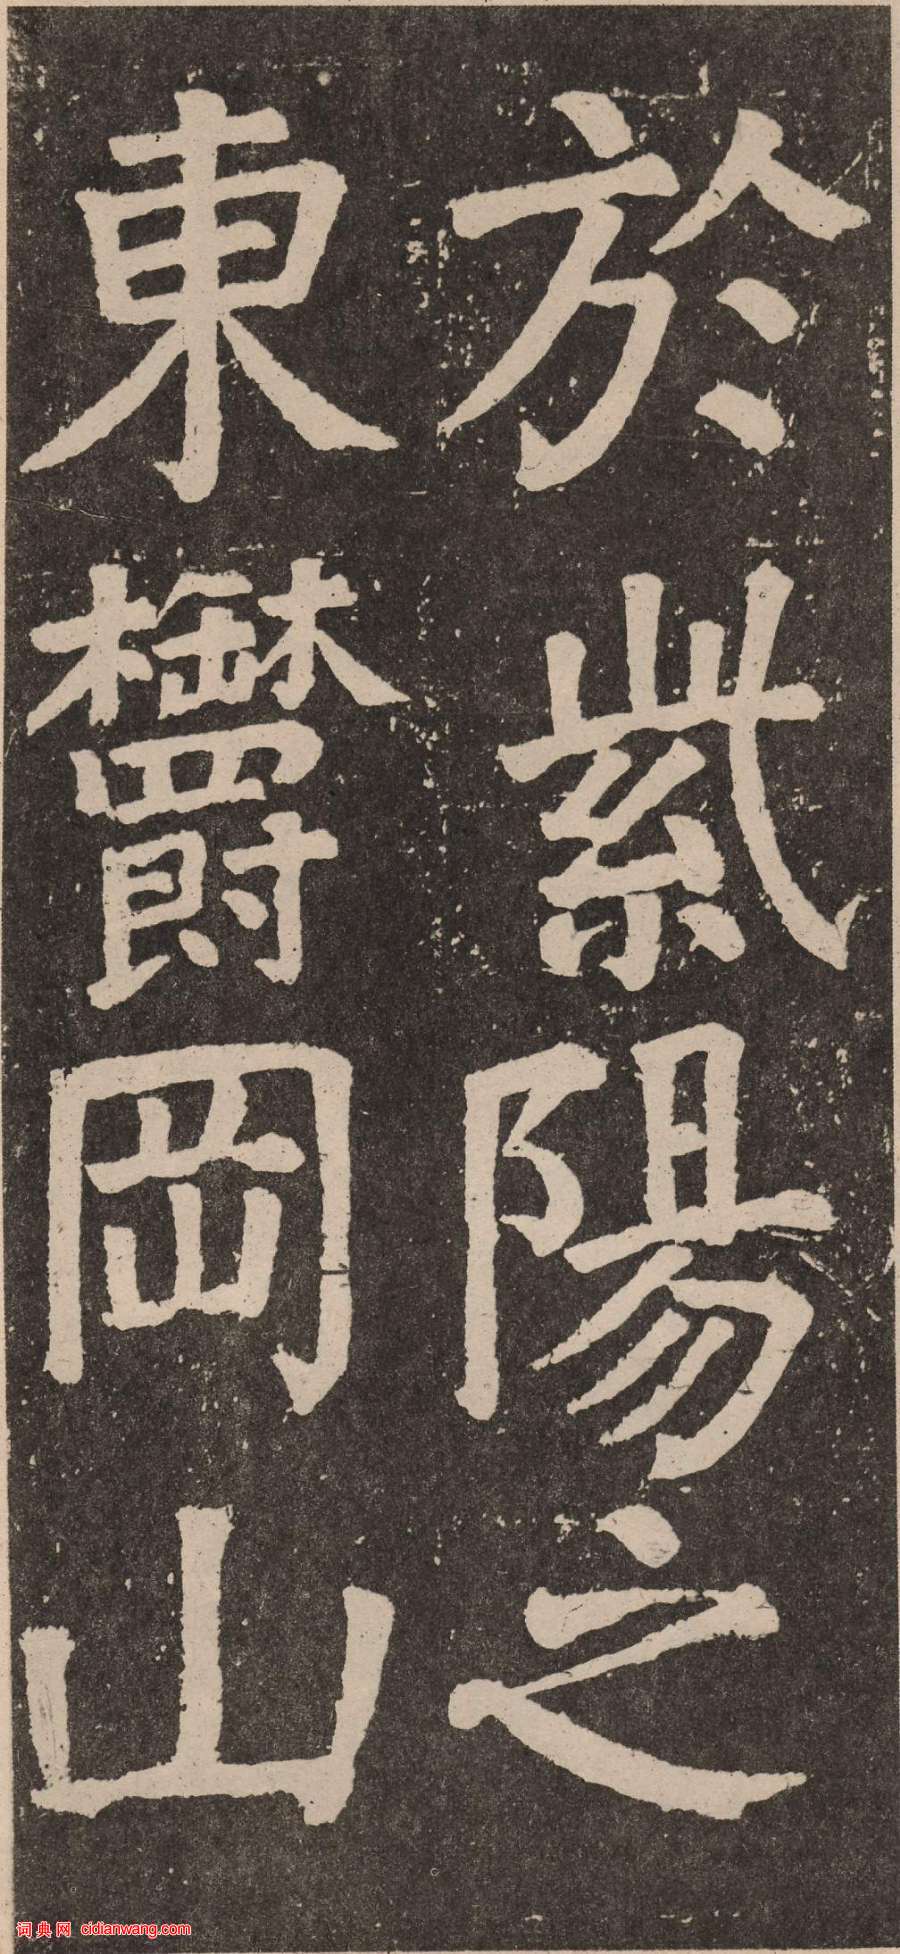 於紫陽之
東欝岡山
词典网 cidianwang.com